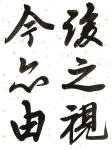 後之視
今亦由